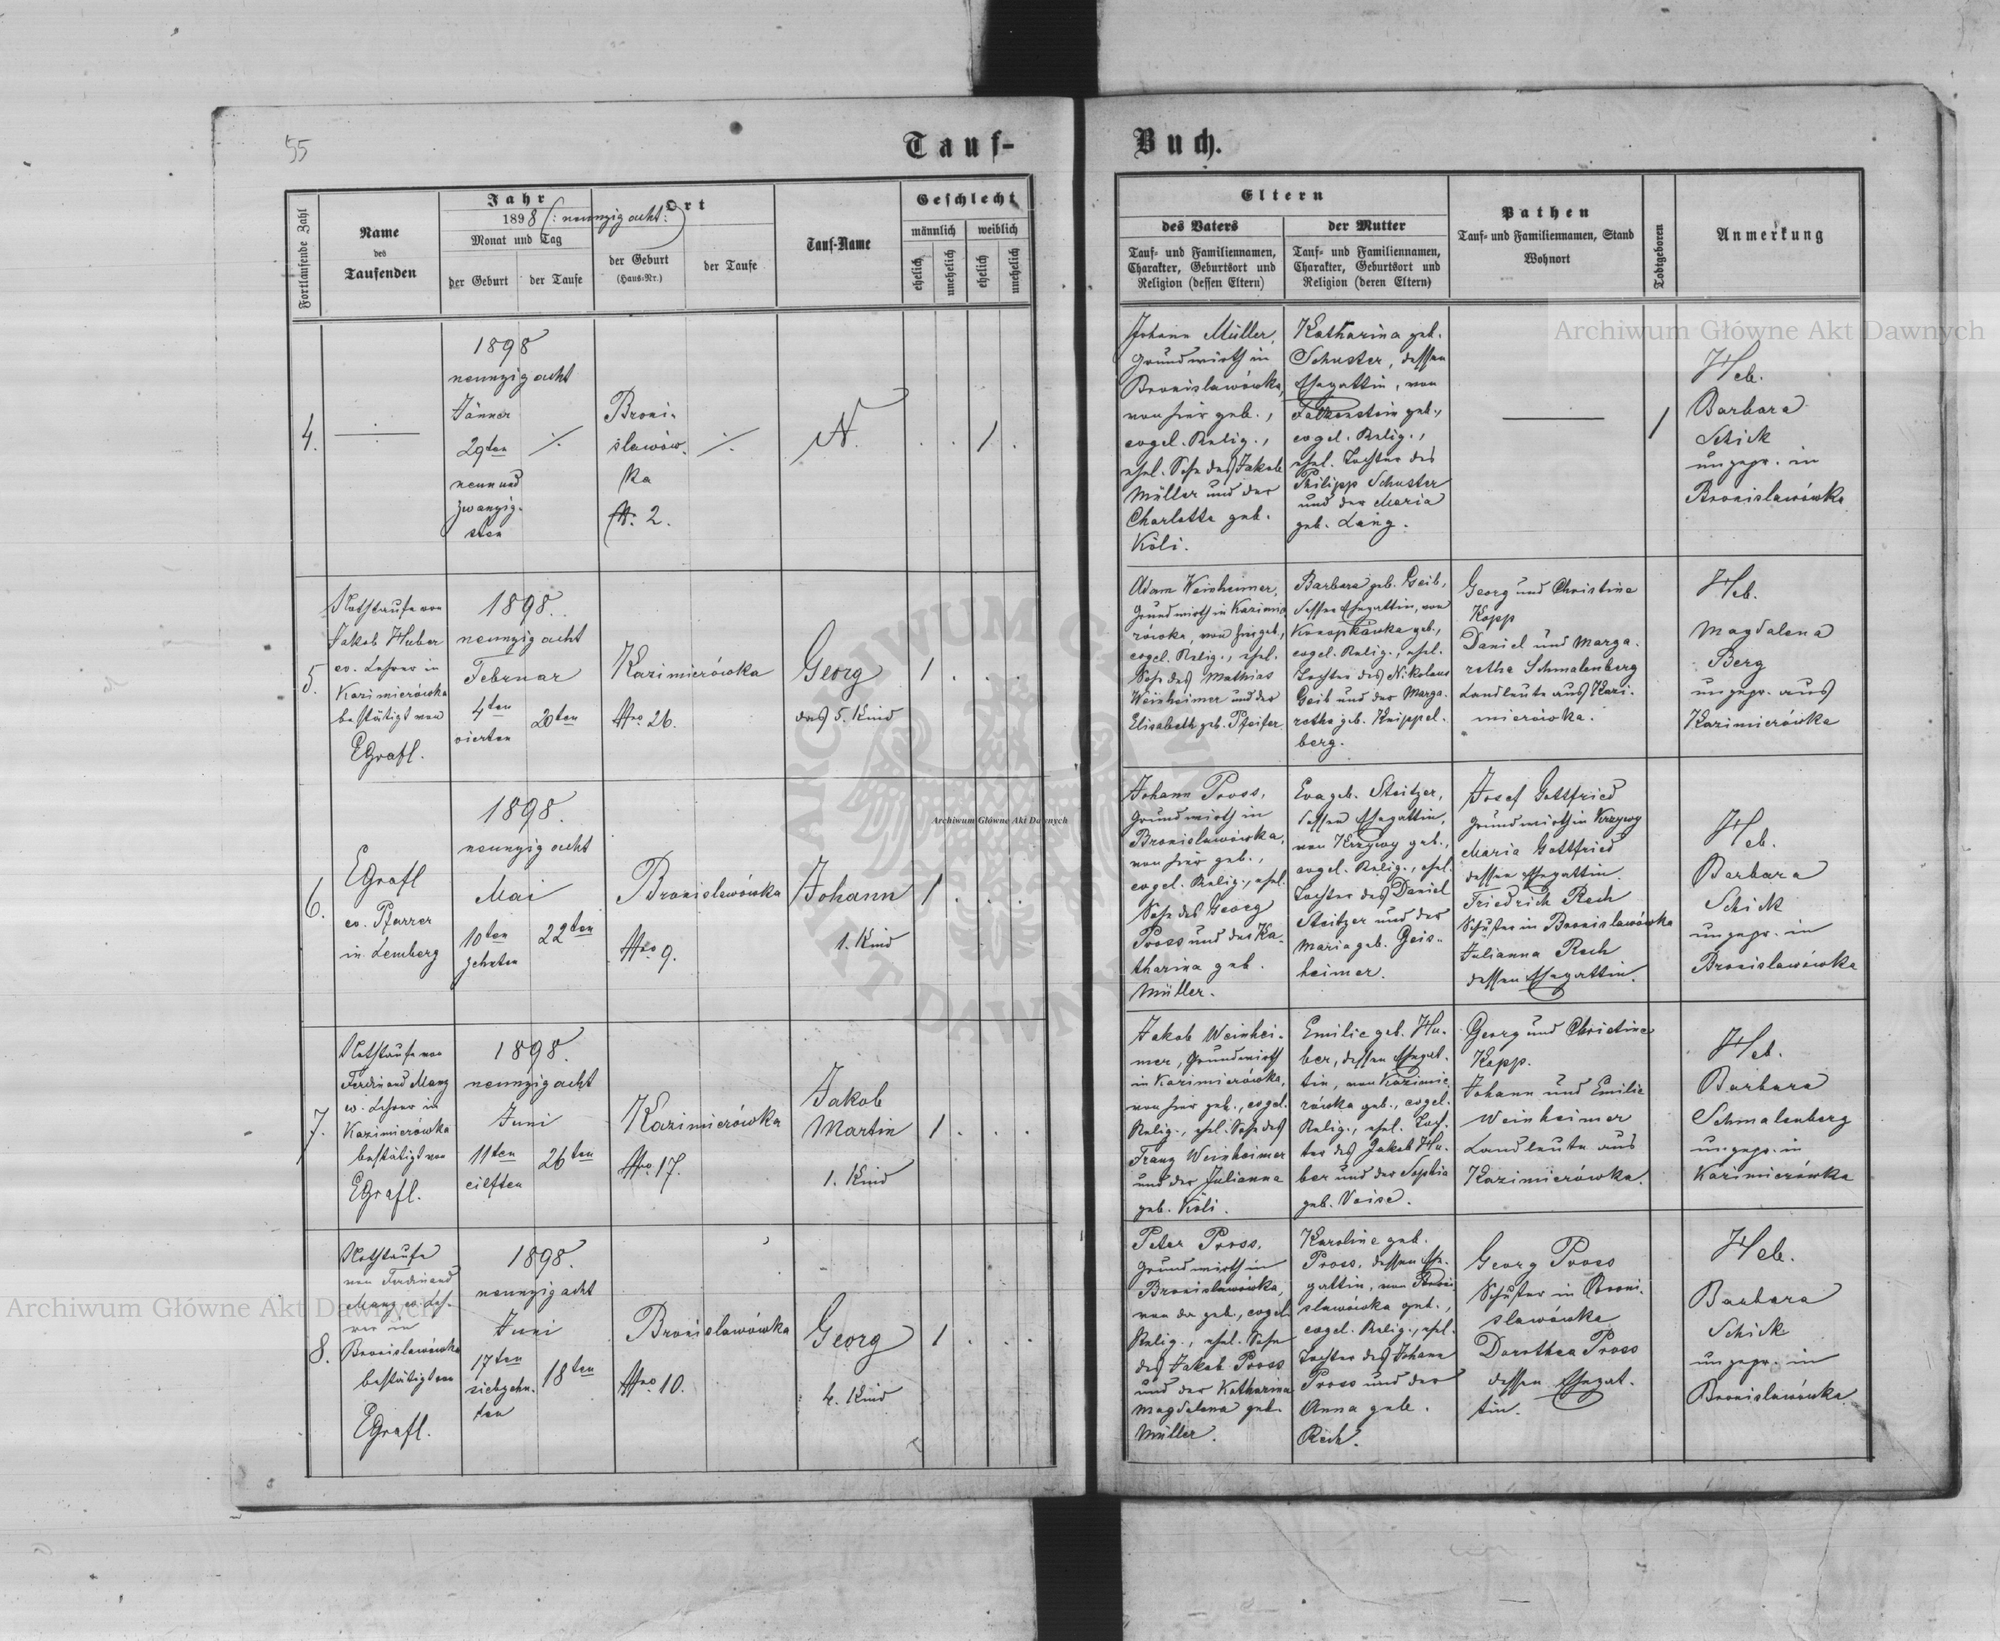 55
Tauf-
Buch.
Fortlaufende Zahl
Name
des
Taufenden
Jahr
1898 (: neunzig acht :)
Monat und Tag
der Geburt
der Taufe
Ort
der Geburt
(Haus-Nr.)
der Taufe
Tauf-Name
Geschlecht
männlich
weiblich
ehelich
unehelich
ehelich
unehelich
Eltern
des Vaters
Tauf- und Familiennamen,
Charakter, Geburtsort und
Religion (dessen Eltern)
der Mutter
Tauf- und Familiennamen,
Charakter, Geburtsort und
Religion (deren Eltern)
Pathen
Tauf- und Familiennamen, Stand
Wohnort
Todtgeboren
Anmerkung
4.
1898
neunzig acht
Jänner
29ten
neunund
zwanzig-
sten
Broni-
slawów-
ka
Nr. 2.
N.
1
Johann Müller,
Grundwirth in
Bronislawówka,
von hier geb.,
evgel. Relig.,
ehel. Sohn des Jakob
Müller und der
Charlotte geb.
Köli.
Katharina geb.
Schuster, dessen
Ehegattin, von
Falkenstein geb.,
evgel. Relig.,
ehel. Tochter des
Philipp Schuster
und der Maria
geb. Lang.
1
Heb.
Barbara
Schick
ungepr. in
Bronislawówka
5.
Nothtaufe von
Jakob Huber
ev. Lehrer in
Kazimierówka
bestätigt von
EGrafl.
1898.
neunzig acht
Februar
4ten
vierten
20ten
Kazimierówka
Nro 26.
Georg
das 5. Kind
1
Adam Weinheimer,
Grundwirth in Kazimie
rówka, von hier geb.,
evgel. Relig., ehel.
Sohn des Mathias
Weinheimer und der
Elisabeth geb. Pfeifer
Barbara geb. Geib,
dessen Ehegattin, von
Konopkówka geb.,
evgel. Relig., ehel.
Tochter des Nikolaus
Geib und der Marga-
retha geb. Knippel-
berg.
Georg und Christine
Kopp
Daniel und Marga-
retha Schmalenberg
Landleute aus Kazi-
mierówka.
Heb.
Magdalena
Berg
ungepr. aus
Kazimierówka
6.
EGrafl
ev. Pfarrer
in Lemberg
1898.
neunzig acht
Mai
10ten
zehnten
22ten
Bronislawówka
Nro 9.
Johann
1. Kind
1
Johann Pross,
Grundwirth in
Bronislawówka,
von hier geb.,
evgel. Relig., ehel.
Sohn des Georg
Pross und der Ka-
tharina geb.
Müller.
Eva geb. Steitzer,
dessen Ehegattin,
von Krzywy geb.,
evgel. Relig., ehel.
Tochter des Daniel
Steitzer und der
Maria geb. Geis-
heimer.
Josef Gottfried
Grundwirth in Krzywy
Maria Gottfried
dessen Ehegattin.
Friedrich Rech
Schuster in Bronislawówka
Julianna Rech
dessen Ehegattin.
Heb.
Barbara
Schick
ungepr. in
Bronislawówka
7.
Nothtaufe von
Ferdinand Manz
ev. Lehrer in
Kazimierówka
bestätigt von
EGrafl.
1898.
neunzig acht
Juni
11ten
eilften
26ten
Kazimierówka
Nro 17.
Jakob
Martin
1. Kind
1
Jakob Weinhei-
mer, Grundwirth
in Kazimierówka,
von hier geb., evgel.
Relig., ehel. Sohn des
Franz Weinheimer
und der Julianna
geb. Köli.
Emilie geb. Hu-
ber, dessen Ehegat-
tin, von Kazimie-
rówka geb., evgel.
Relig., ehel. Toch-
ter des Jakob Hu-
ber und der Sophia
geb. Voise.
Georg und Christine
Kopp.
Johann und Emilie
Weinheimer
Landleute aus
Kazimierówka.
Heb.
Barbara
Schmalenberg
ungepr. in
Kazimierówka
8.
Nothtaufe
von Ferdinand
Manz ev. Leh-
rer in
Bronislawówka
bestätigt von
EGrafl.
1898.
neunzig acht
Juni
17ten
siebzehn-
ten
18ten
Bronislawówka
Nro 10.
Georg
4. Kind
1
Peter Pross,
Grundwirth in
Bronislawówka,
von da geb., evgel.
Relig., ehel. Sohn
des Jakob Pross
und der Katharina
Magdalena geb.
Müller.
Karoline geb.
Pross, dessen Ehe-
gattin, von Broni
slawówka geb.,
evgel. Relig., ehel.
Tochter des Johann
Pross und der
Anna geb.
Rech.
Georg Pross
Schuster in Broni-
slawówka
Dorothea Pross
dessen Ehegat-
tin.
Heb.
Barbara
Schick
ungepr. in
Bronislawówka.
Archiwum Główne Akt Dawnych
Archiwum Główne Akt Dawnych
Archiwum Główne Akt Dawnych